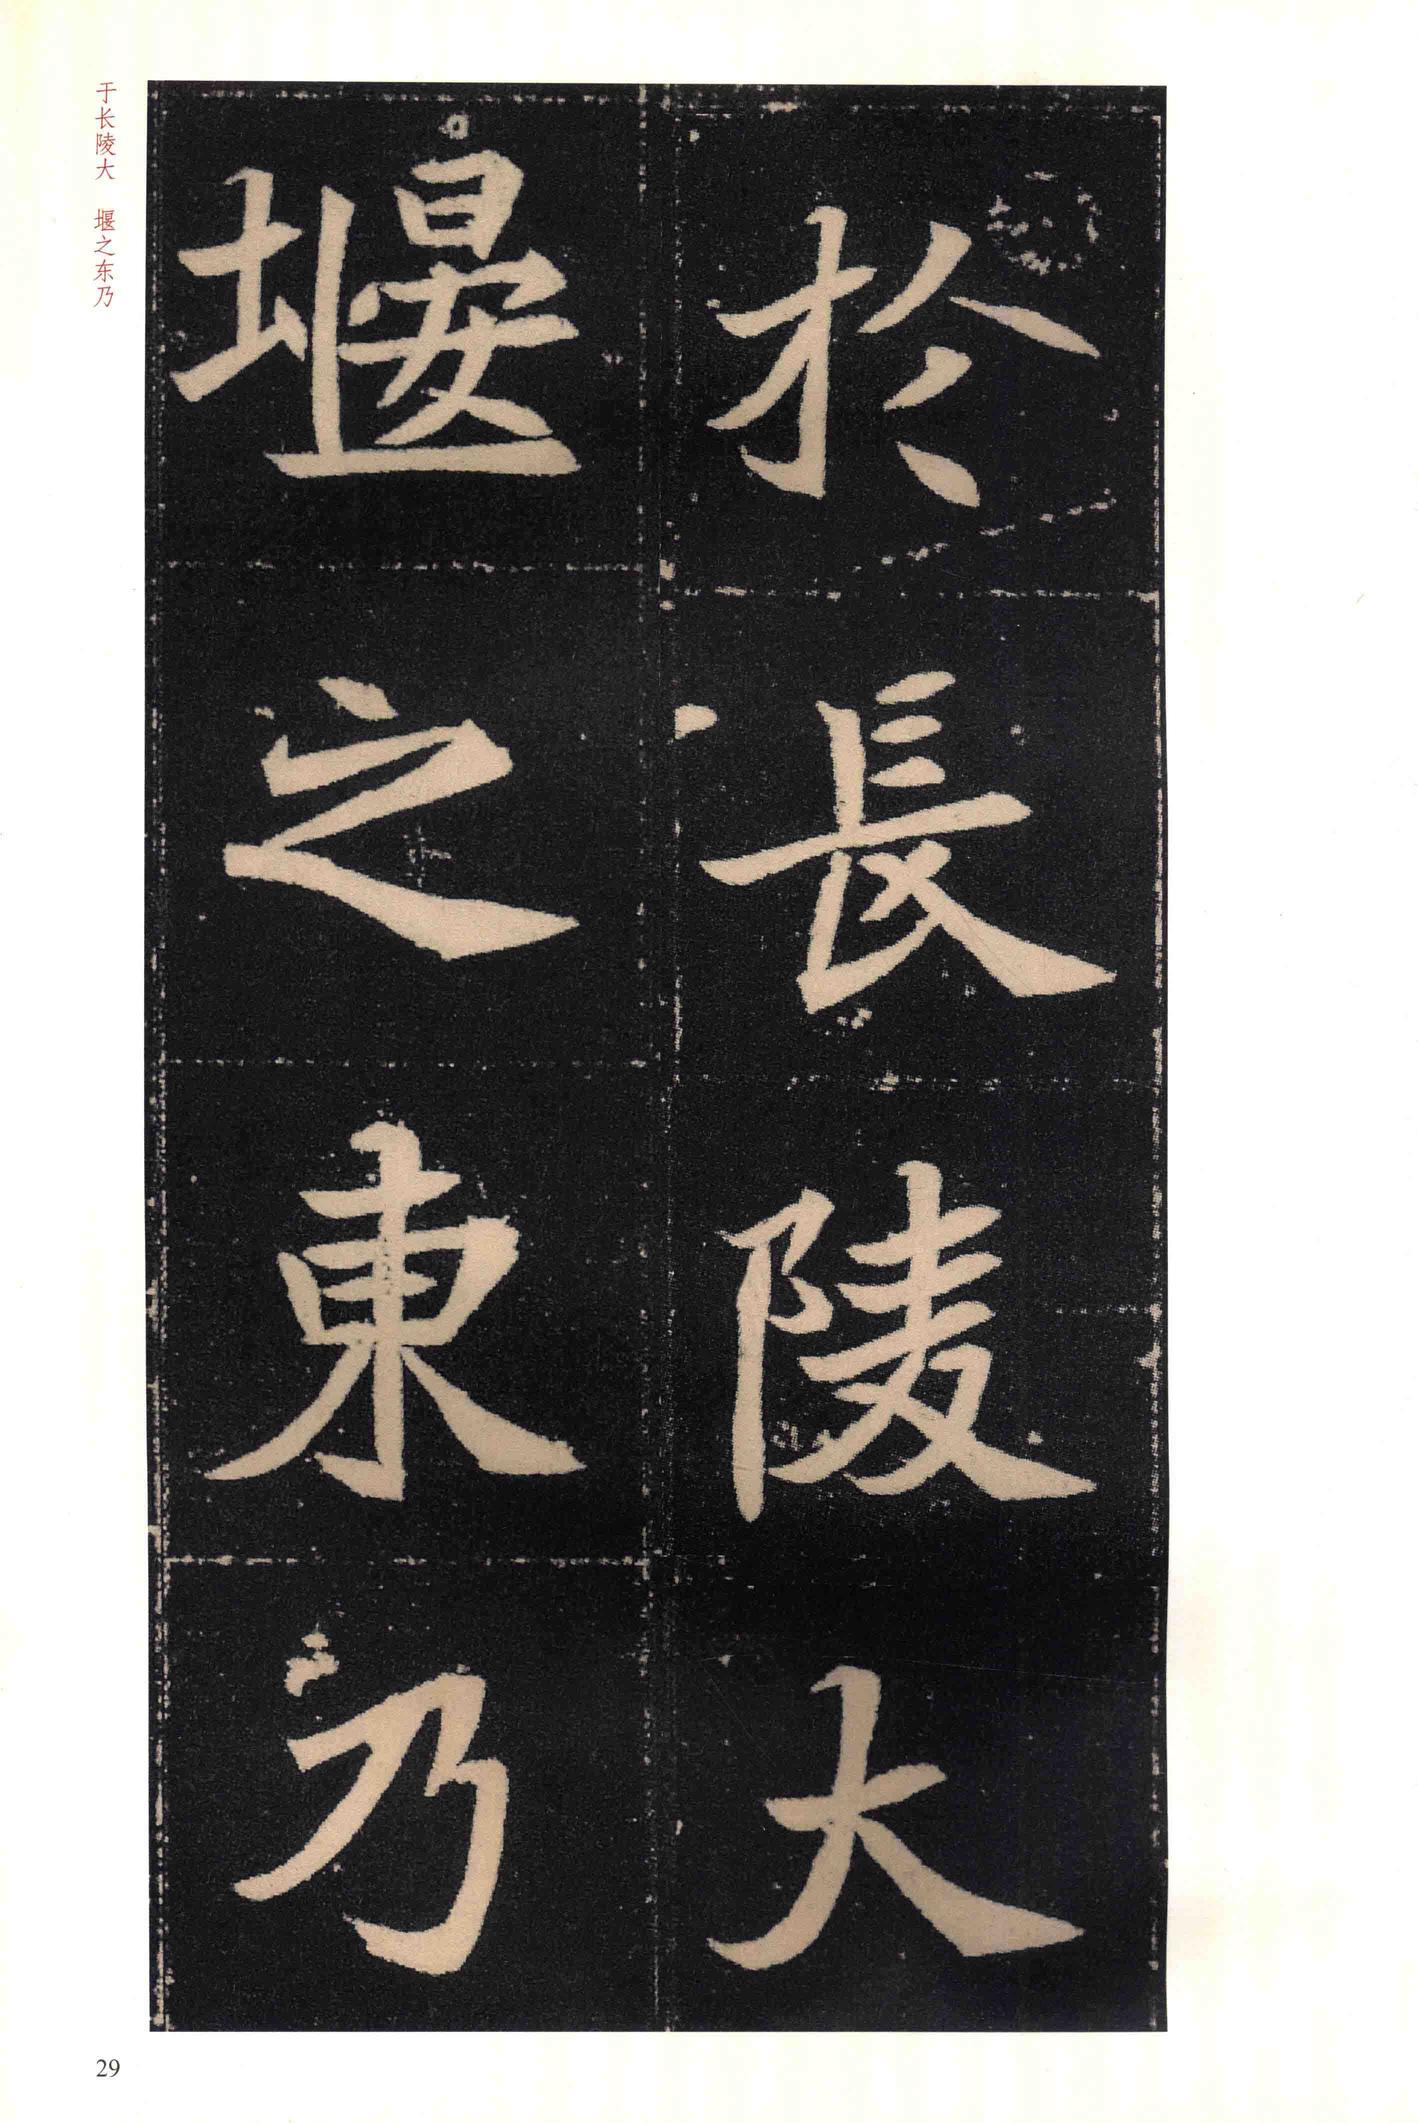 於長陵大
堰之東乃
于长陵大　堰之东乃
29